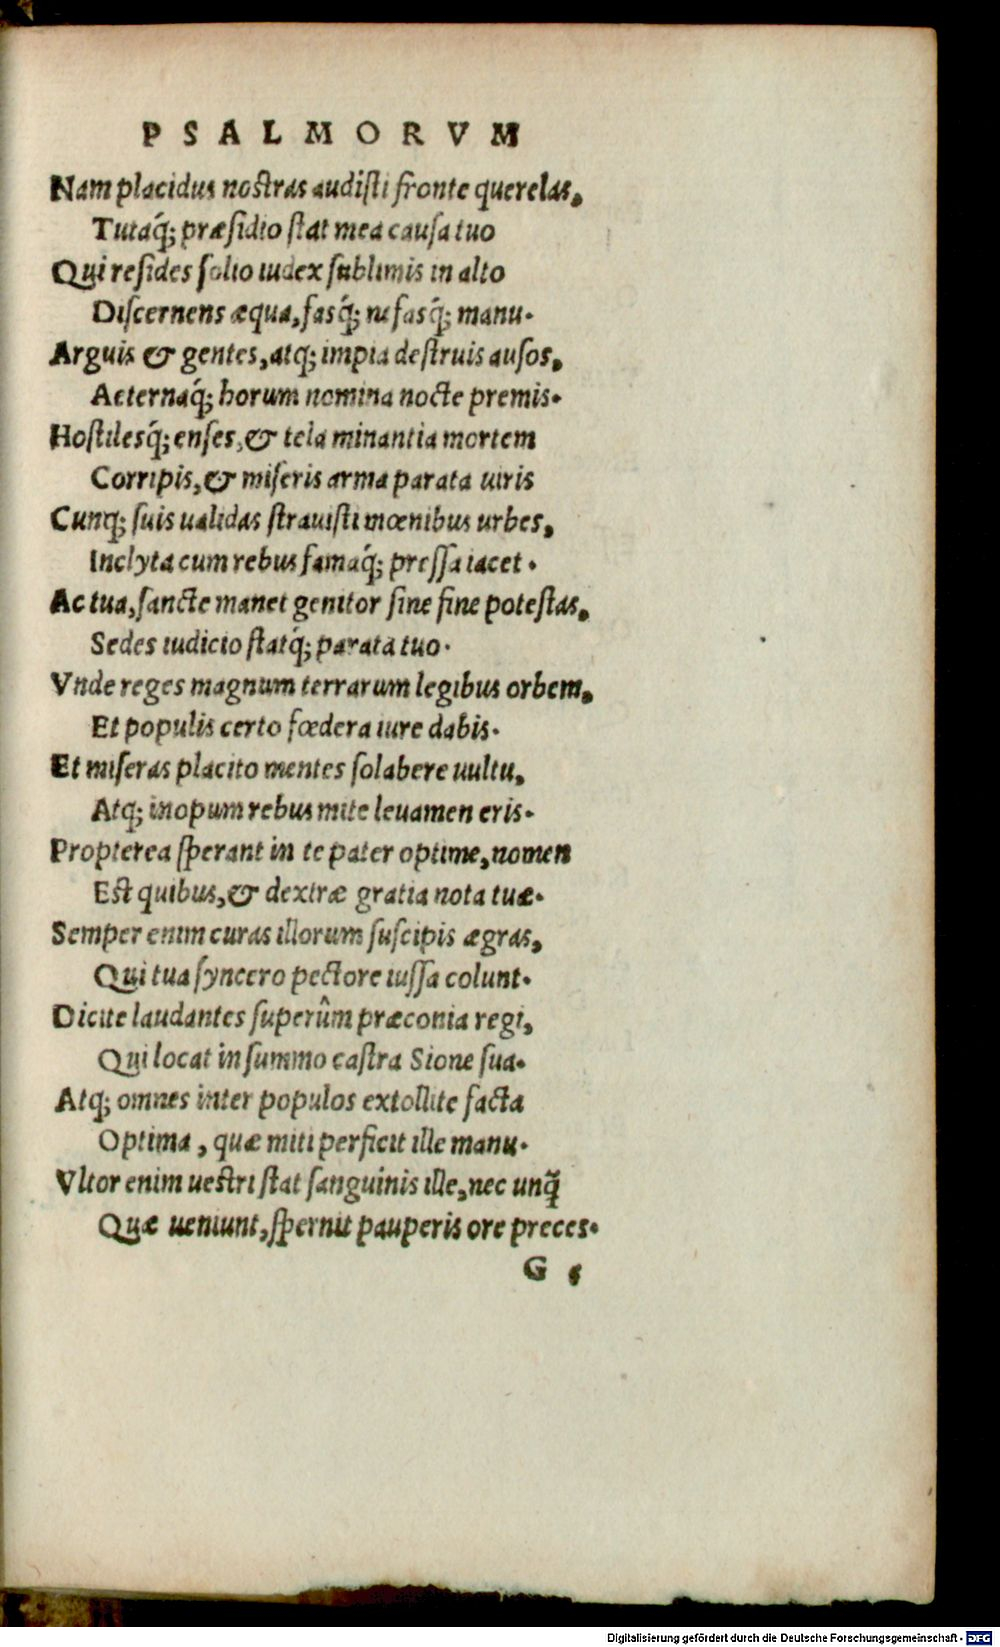 PSALMORVM
Nam placidus nostras audisti fronte querelas,
Tutaq́; præsidio stat mea causa tuo
Qui resides solio iudex sublimis in alto
Discernens æqua, fasq́; nefasq́; manu.
Arguis & gentes, atq; impia destruis ausos,
Aeternaq́; horum nomina nocte premis.
Hostilesq́; enses, & tela minantia mortem
Corripis, & miseris arma parata uiris
Cunq; suis ualidas strauisti mœnibus urbes,
Inclyta cum rebus famaq́; pressa iacet.
Ac tua, sancte manet genitor sine fine potestas,
Sedes iudicio statq́; parata tuo.
Vnde reges magnum terrarum legibus orbem,
Et populis certo fœdera iure dabis.
Et miseras placito mentes solabere uultu,
Atq; inopum rebus mite leuamen eris.
Propterea sperant in te pater optime, nomen
Est quibus, & dextræ gratia nota tuæ.
Semper enim curas illorum suscipis ægras,
Qui tua syncero pectore iussa colunt.
Dicite laudantes superûm præconia regi,
Qui locat in summo castra Sione sua.
Atq; omnes inter populos extollite facta
Optima, quæ miti perficit ille manu.
Vltor enim uestri stat sanguinis ille, nec unq̃
Quæ ueniunt, spernit pauperis ore preces.
G 5
Digitalisierung gefördert durch die Deutsche Forschungsgemeinschaft - DFG